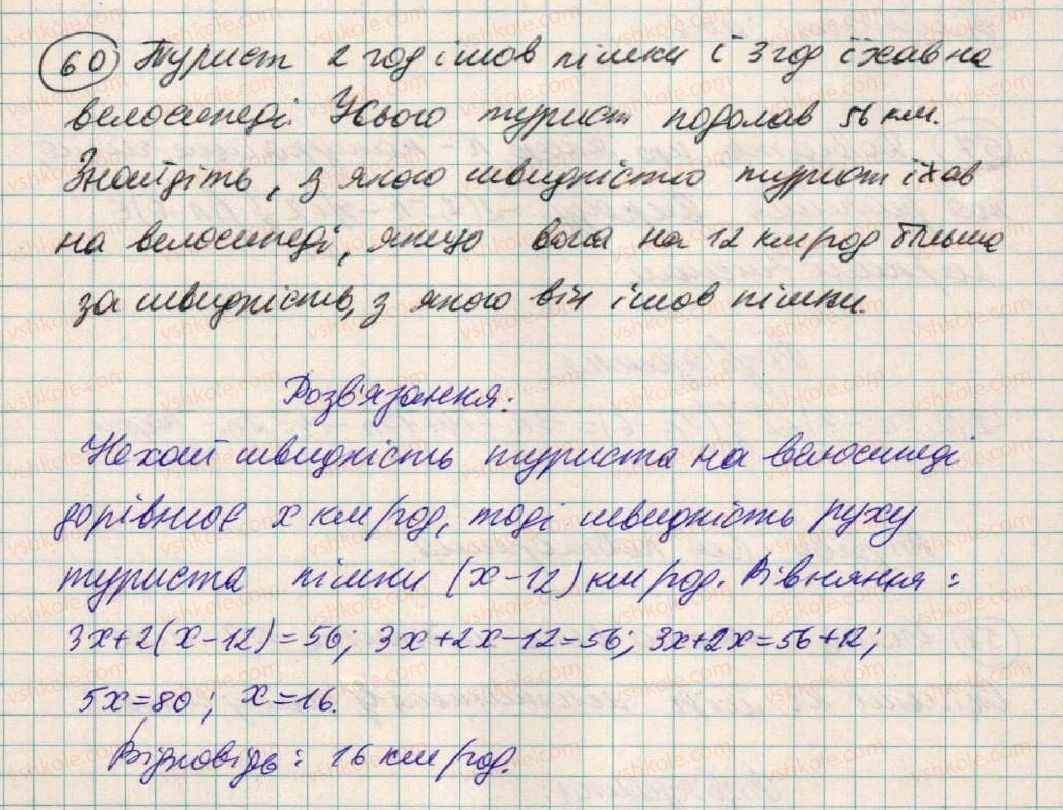 60 Турист 2 год ішов пішки і 3 год їхав на
велосипеді. Усього турист подолав 56 км.
Знайдіть, з якою швидкістю турист їхав
на велосипеді, якщо вона на 12 км/год більша
за швидкість, з якою він ішов пішки.
Розв'язання:
Нехай швидкість туриста на велосипеді
дорівнює х км/год, тоді швидкість руху
туриста пішки (х-12) км/год. Рівняння:
3х+2(х-12)=56; 3х+2х-12=56; 3х+2х=56+12;
5х=80; х=16.
Відповідь: 16 км/год.